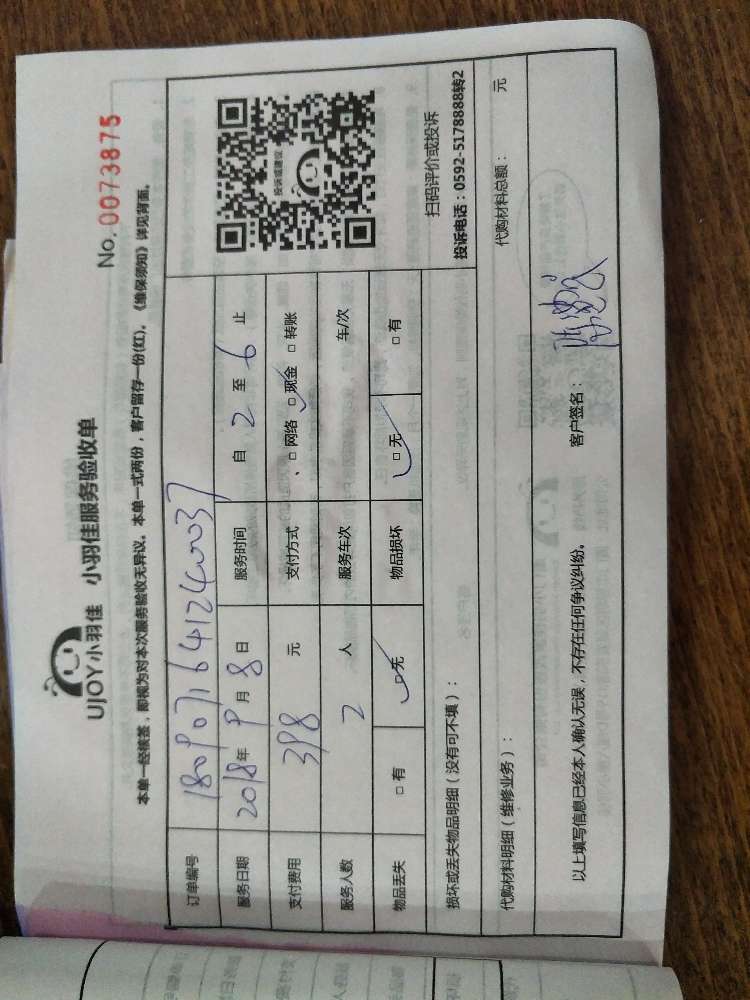 UJOY小羽佳 小羽佳服务验收单
No. 0073875
本单一经核签，即视为对本次服务验收无异议。本单一式两份，客户留存一份(红)。《维保须知》详见背面。
订单编号 1809071641240037
服务日期 2018年 9月 8日 服务时间 自 2 至 6 止
支付费用 398 元 支付方式 □网络 □现金 □转账
服务人数 2 人 服务车次 车/次
物品丢失 □有 □无 物品损坏 □无 □有
投诉或建议
扫码评价或投诉
投诉电话：0592-5178888转2
损坏或丢失物品明细（没有可不填）：
代购材料明细（维修业务）： 代购材料总额： 元
以上填写信息已经本人确认无误，不存在任何争议纠纷。 客户签名：